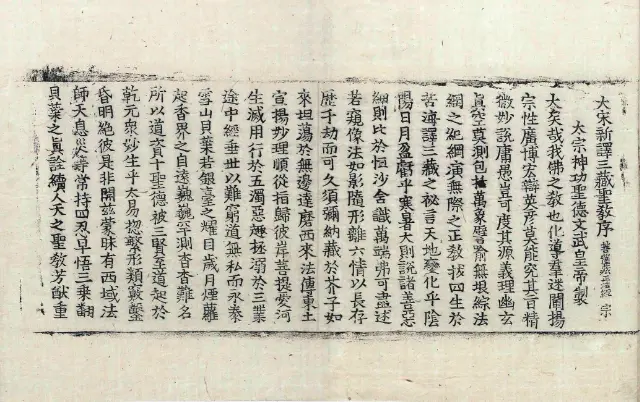 大宋新譯三藏聖教序
太宗神功聖德文武皇帝製
大矣哉我佛之教也化導羣迷闡揚
宗性廣博宏辯英彥莫能究其旨精
微妙說庸愚豈可度其源義理幽玄
真空莫測包括萬象譬喻無垠綜法
網之紀綱演無際之正教拔四生於
苦海譯三藏之秘言天地變化乎陰
陽日月盈虧乎寒暑大則說諸善惡
細則比於恒沙含識萬端弗可盡述
若窺像法如影隨形離六情以長存
歷千劫而可久須彌納藏於芥子如
來坦蕩於無邊達磨西來法傳東土
宣揚妙理順從指歸彼岸菩提愛河
生滅用行於五濁惡趣拯溺於三業
途中經垂世以難窮道無私而永泰
雪山貝葉若銀臺之耀目歲月煙蘿
起香界之自遠巍巍罕測杳杳難名
所以道資十聖德被三賢至道起於
乾元眾妙生乎太易揔繫形類竅鑿
昏明絕彼是非開兹蒙昧有西域法
師天息災等常持四忍早悟三乘翻
貝葉之真詮續人天之聖教芳猷重